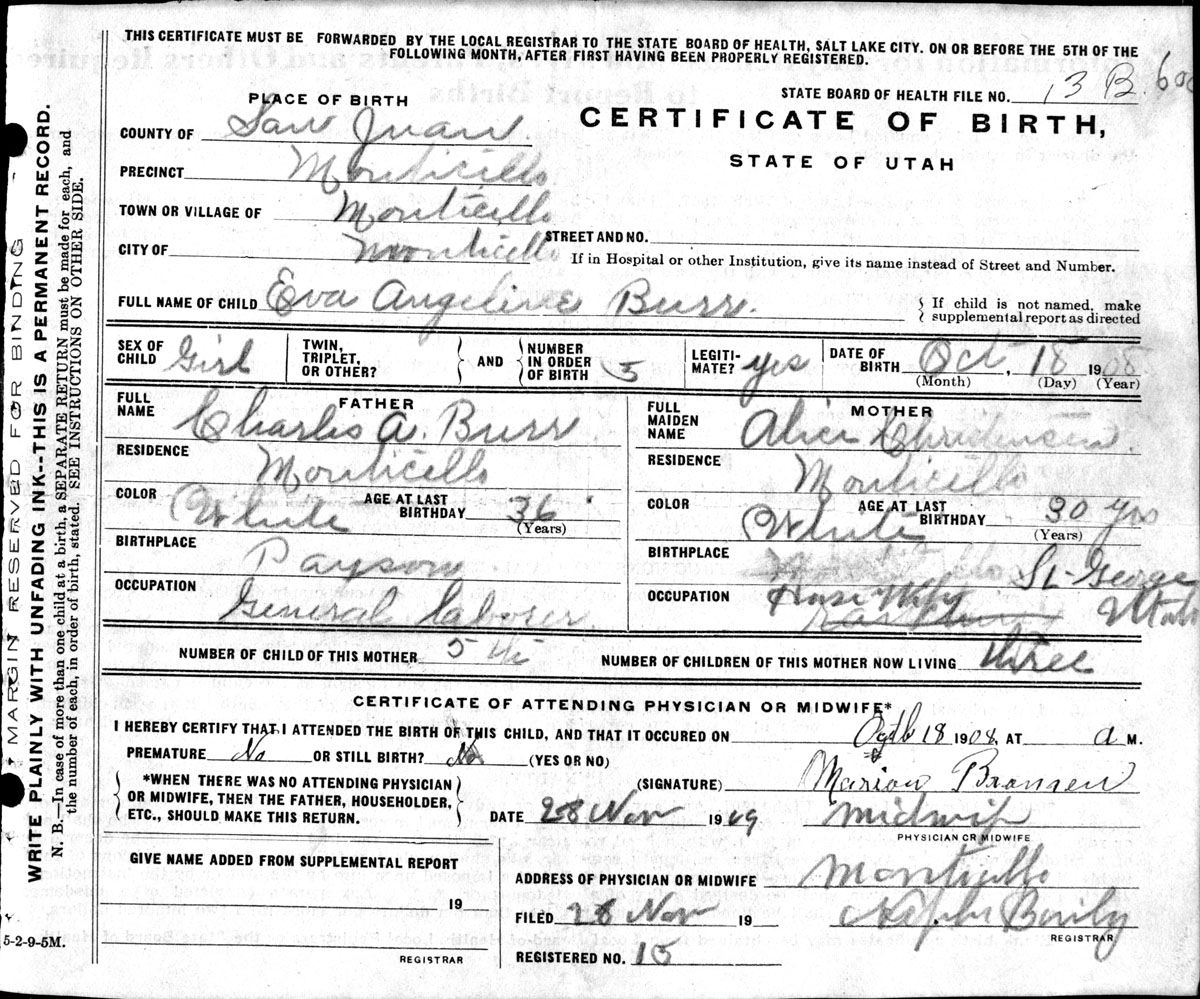 THIS CERTIFICATE MUST BE FORWARDED BY THE LOCAL REGISTRAR TO THE STATE BOARD OF HEALTH, SALT LAKE CITY. ON OR BEFORE THE 5TH OF THE
FOLLOWING MONTH, AFTER FIRST HAVING BEEN PROPERLY REGISTERED.
STATE BOARD OF HEALTH FILE NO. 13 B.
PLACE OF BIRTH
CERTIFICATE OF BIRTH,
STATE OF UTAH
COUNTY OF San Juan
PRECINCT Monticello
TOWN OR VILLAGE OF Monticello
CITY OF Monticello STREET AND NO.
If in Hospital or other Institution, give its name instead of Street and Number.
FULL NAME OF CHILD Eva Angeline Burr. { If child is not named, make
supplemental report as directed
SEX OF CHILD Girl TWIN, TRIPLET, OR OTHER? } AND { NUMBER IN ORDER OF BIRTH 5 LEGITI-MATE? yes DATE OF BIRTH Oct, 18 1908
(Month) (Day) (Year)
FATHER
FULL NAME Charlis A. Burr
RESIDENCE Monticello
COLOR White AGE AT LAST BIRTHDAY 36
(Years)
BIRTHPLACE Payson
OCCUPATION General laborer
MOTHER
FULL MAIDEN NAME Alice Christensen.
RESIDENCE Monticello
COLOR White AGE AT LAST BIRTHDAY 30 yrs
(Years)
BIRTHPLACE St-George
Utah
OCCUPATION House Wife
NUMBER OF CHILD OF THIS MOTHER 5th NUMBER OF CHILDREN OF THIS MOTHER NOW LIVING three
CERTIFICATE OF ATTENDING PHYSICIAN OR MIDWIFE*
I HEREBY CERTIFY THAT I ATTENDED THE BIRTH OF THIS CHILD, AND THAT IT OCCURED ON 18 1908. AT a M.
PREMATURE No OR STILL BIRTH? No (YES OR NO)
{ *WHEN THERE WAS NO ATTENDING PHYSICIAN
OR MIDWIFE, THEN THE FATHER, HOUSEHOLDER,
ETC., SHOULD MAKE THIS RETURN. }
(SIGNATURE) Marion Bronsen
DATE 28 Nov 1909 Midwife
PHYSICIAN OR MIDWIFE
GIVE NAME ADDED FROM SUPPLEMENTAL REPORT
19
REGISTRAR
ADDRESS OF PHYSICIAN OR MIDWIFE Monticello
FILED 28 Nov 19
REGISTRAR
REGISTERED NO. 15
5-2-9-5M.
MARGIN RESERVED FOR BINDING
WRITE PLAINLY WITH UNFADING INK---THIS IS A PERMANENT RECORD.
N. B.—In case of more than one child at a birth, a SEPARATE RETURN must be made for each, and
the number of each, in order of birth, stated. SEE INSTRUCTIONS ON OTHER SIDE.